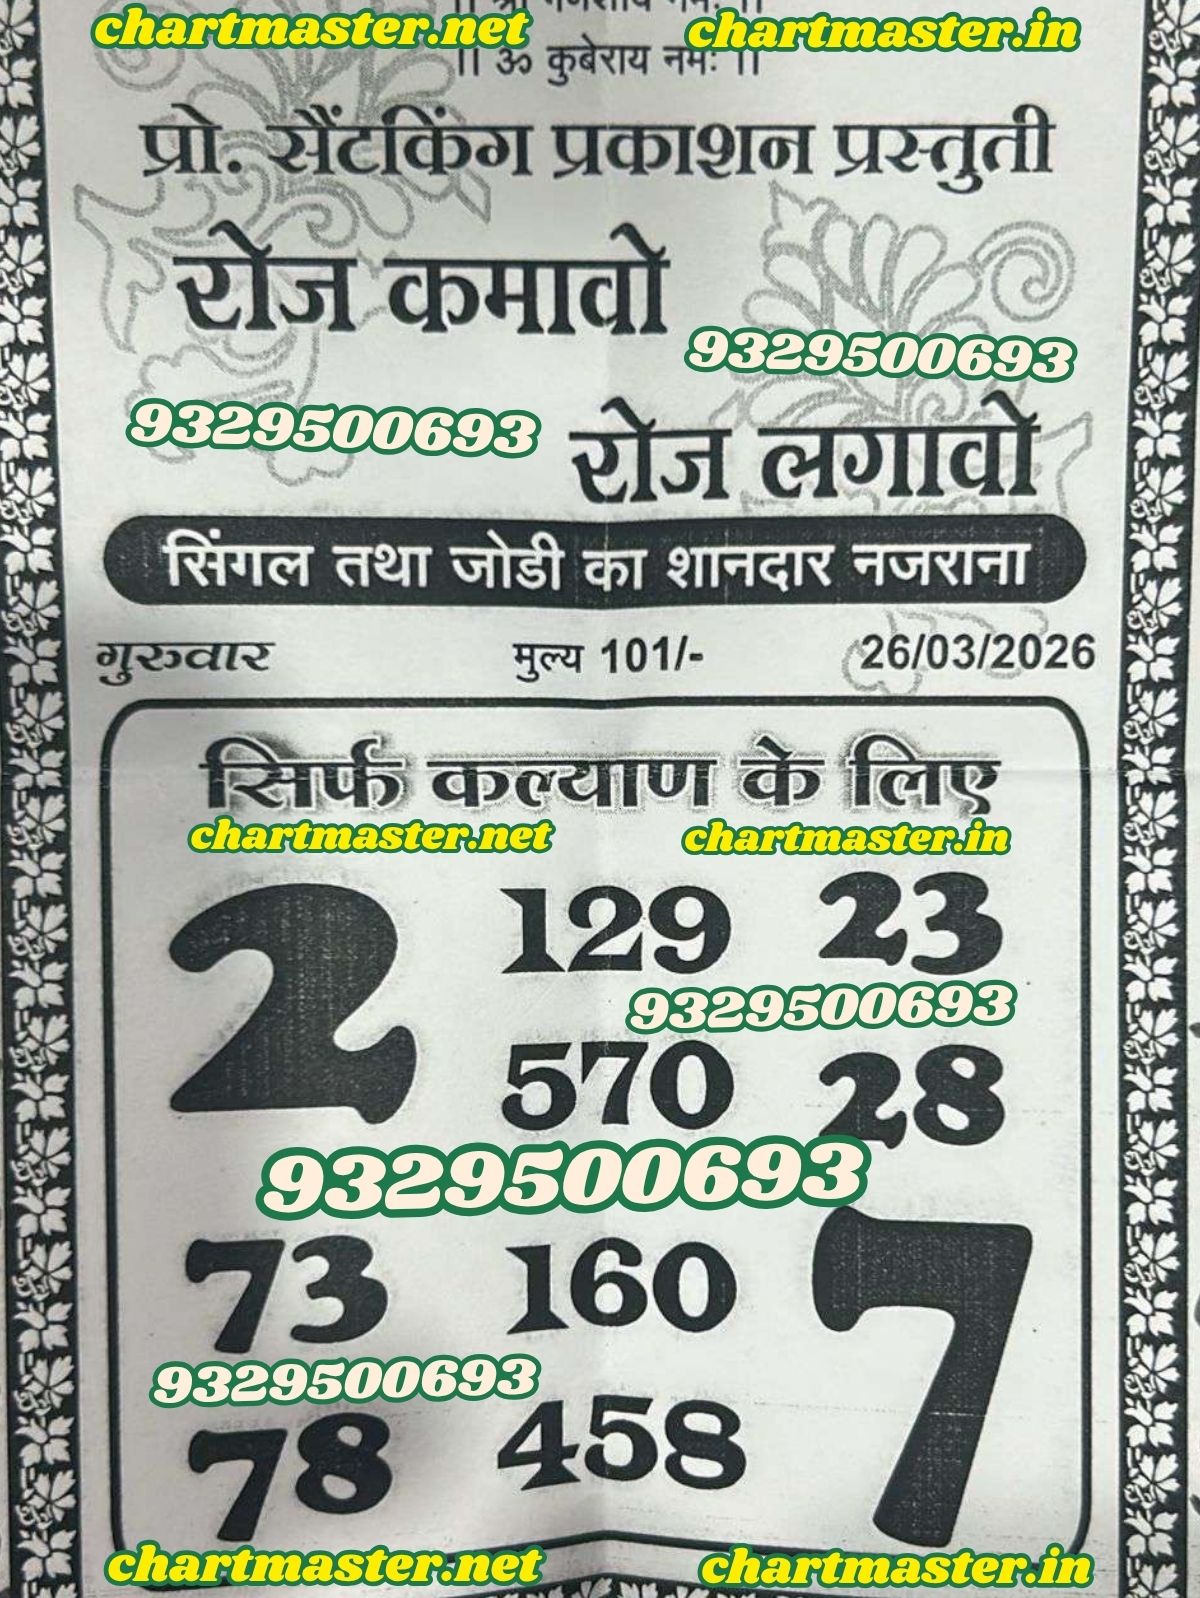 chartmaster.net chartmaster.in
|| श्री गणेशाय नमः ||
|| ॐ कुबेराय नमः ||
प्रो. सैंटकिंग प्रकाशन प्रस्तुती
रोज कमावो
9329500693
9329500693
रोज लगावो
सिंगल तथा जोडी का शानदार नजराना
गुरुवार मुल्य 101/- 26/03/2026
सिर्फ कल्याण के लिए
chartmaster.net chartmaster.in
2 129 23
9329500693
570 28
9329500693
73 160 7
9329500693
78 458
chartmaster.net chartmaster.in